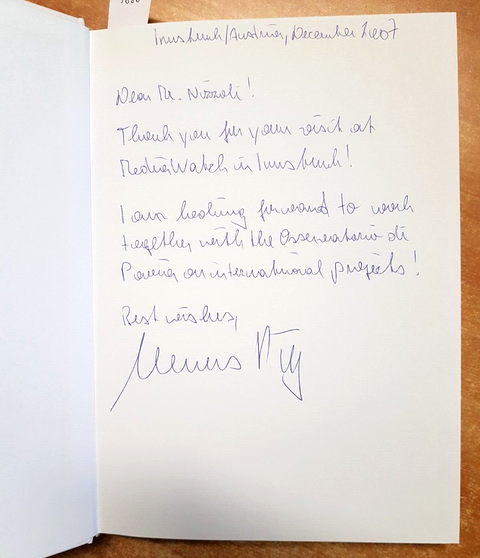 Innsbruck/Austria, December 2007
Dear Mr. Nizzoli!
Thank you for your visit at
MediaWatch in Innsbruck!
I am looking forward to work
together with the Osservatorio di
Pavia on international projects!
Best wishes,